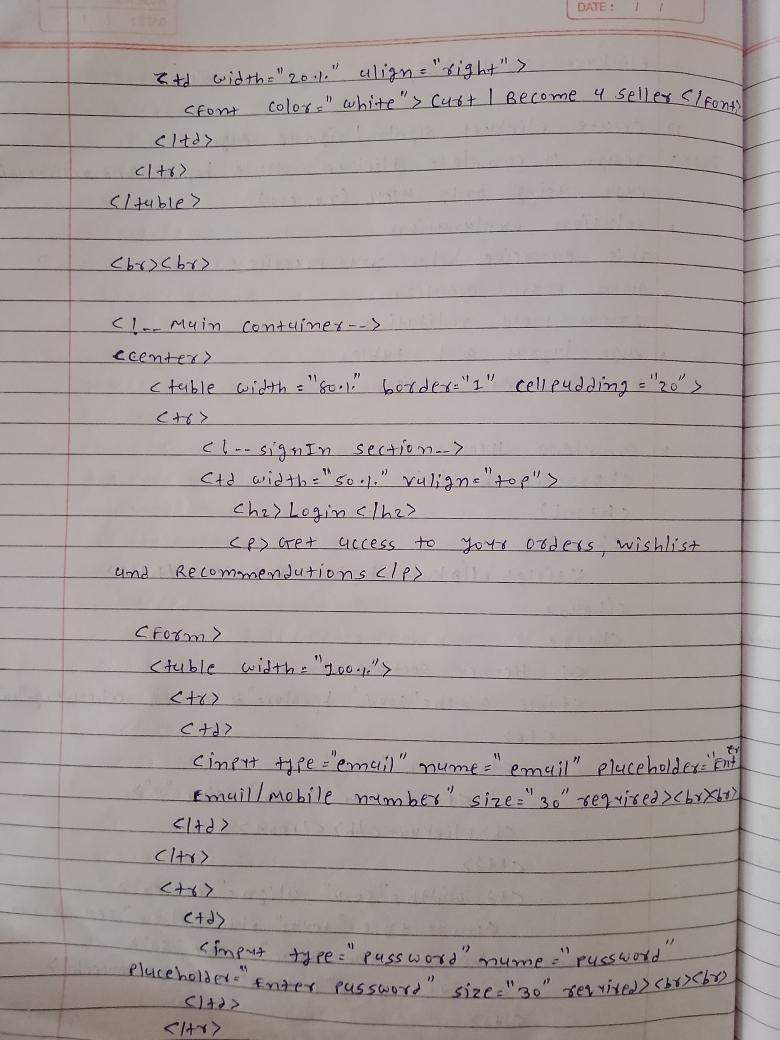 DATE: / /
<td width="20%" align="right">
<font color="white"> Cart | Become a seller </font>
</td>
</tr>
</table>
<br><br>
<!-- Main container-->
<center>
<table width="80%" border="1" cellpadding="20">
<tr>
<!-- signIn section-->
<td width="50%" valign="top">
<h2> Login </h2>
<p> Get access to your orders, wishlist
and Recommendations </p>
<Form>
<table width="100%">
<tr>
<td>
<input type="email" name="email" placeholder="Enter
Email/Mobile number" size="30" required><br><br>
</td>
</tr>
<tr>
<td>
<input type="password" name="password"
placeholder="Enter password" size="30" required><br><br>
</td>
</tr>